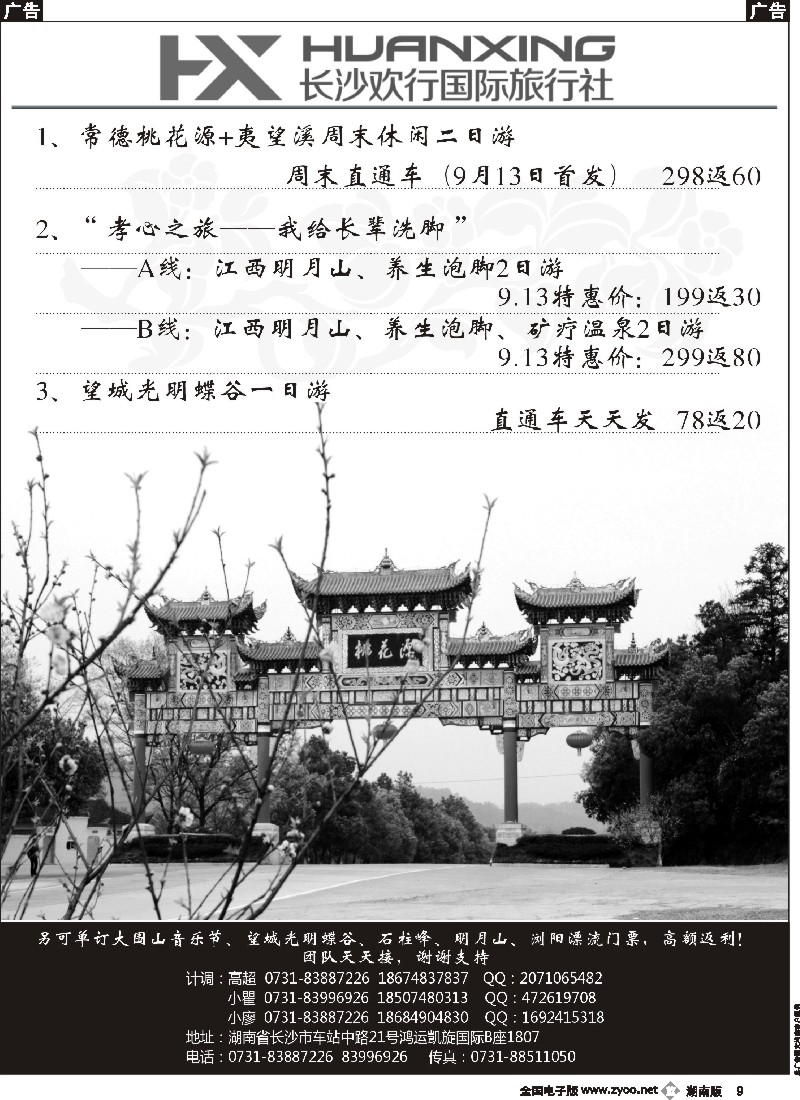 广告
广告
HX HUANXING
长沙欢行国际旅行社
1、常德桃花源+夷望溪周末休闲二日游
周末直通车（9月13日首发） 298返60
2、“孝心之旅——我给长辈洗脚”
——A线：江西明月山、养生泡脚2日游
9.13特惠价：199返30
——B线：江西明月山、养生泡脚、矿疗温泉2日游
9.13特惠价：299返80
3、望城光明蝶谷一日游
直通车天天发 78返20
桃花源
另可单订大围山音乐节、望城光明蝶谷、石柱峰、明月山、浏阳漂流门票，高额返利！
团队天天接，谢谢支持
计调：高超 0731-83887226 18674837837 QQ：2071065482
小瞿 0731-83996926 18507480313 QQ：472619708
小廖 0731-83887226 18684904830 QQ：1692415318
地址：湖南省长沙市车站中路21号鸿运凯旋国际B座1807
电话：0731-83887226 83996926 传真：0731-88511050
全国电子版 www.zyoo.net 湖南版 9